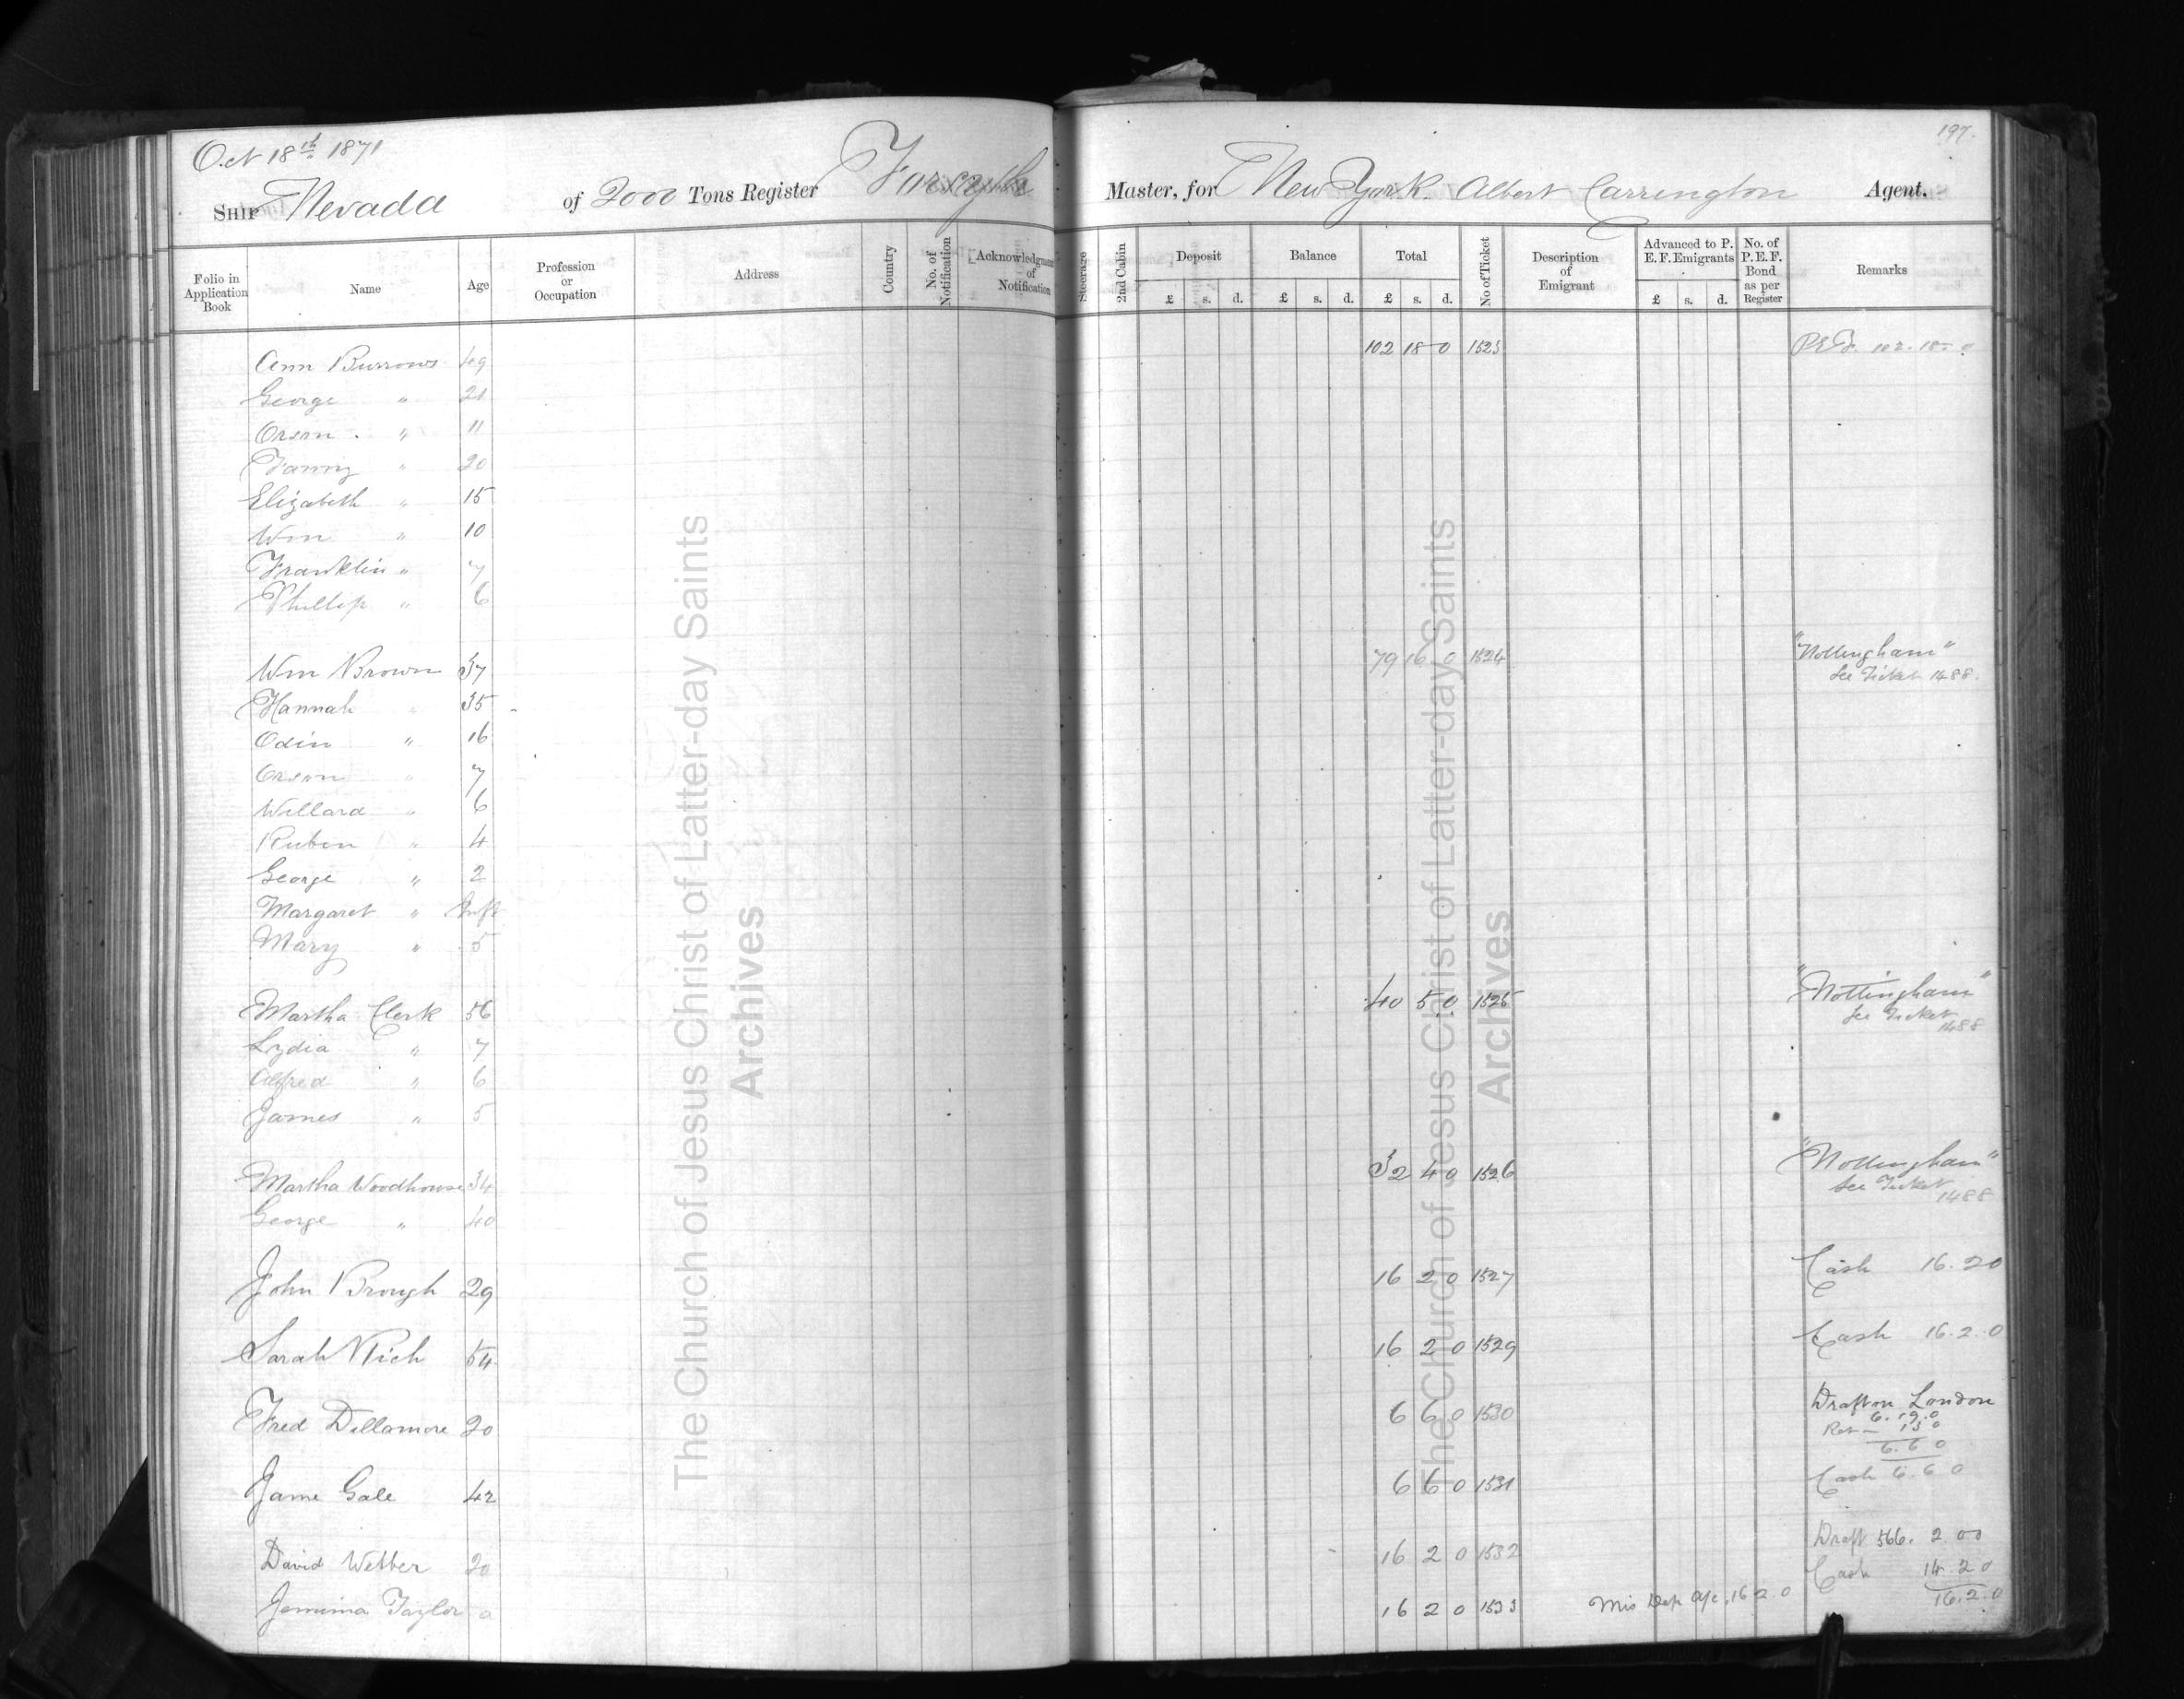 Oct 18th 1871
197.
SHIP Nevada of 2000 Tons Register Forsyth Master, for New York. Albert Carrington Agent.
Folio in Application Book
Name
Age
Profession or Occupation
Address
Country
No. of Notification
Acknowledgment of Notification
Steerage
2nd Cabin
Deposit £ s. d.
Balance £ s. d.
Total £ s. d.
No of Ticket
Description of Emigrant
Advanced to P. E. F. Emigrants £ s. d.
No. of P. E. F. Bond as per Register
Remarks
Ann Burrows 49 102 18 0 1523 P.E.F. 102.18.0
George " 21
Orson " 11
Fanny " 20
Elizabeth " 15
Wm " 10
Franklin " 7
Phillip " 6
Wm Brown 37 79 16 0 1524 "Nottingham"
See Ticket 1488.
Hannah " 35
Odin " 16
Orson " 7
Willard " 6
Ruben " 4
George " 2
Margaret " Inft
Mary " 5
Martha Clerk 56 40 5 0 1525 "Nottingham"
See Ticket
1488
Lydia " 7
Alfred " 6
James " 5
Martha Woodhouse 34 32 4 0 1526 "Nottingham"
See Ticket
1488
George " 40
John Brough 29 16 2 0 1527 Cash 16.20
Sarah Rich 54 16 2 0 1529 Cash 16.2.0
Fred Dellamore 20 6 6 0 1530 Draft on London
6.19.0
Ret 13 0
6.6 0
Jame Gale 42 6 6 0 1531 Cash 6.6 0
David Webber 20 16 2 0 1532 Draft 566. 2 00
Cash 14.2 0
16.2.0
Jemima Taylor a 16 2 0 1533 Mis Dep a/c, 16 2.0
The Church of Jesus Christ of Latter-day Saints
Archives
The Church of Jesus Christ of Latter-day Saints
Archives